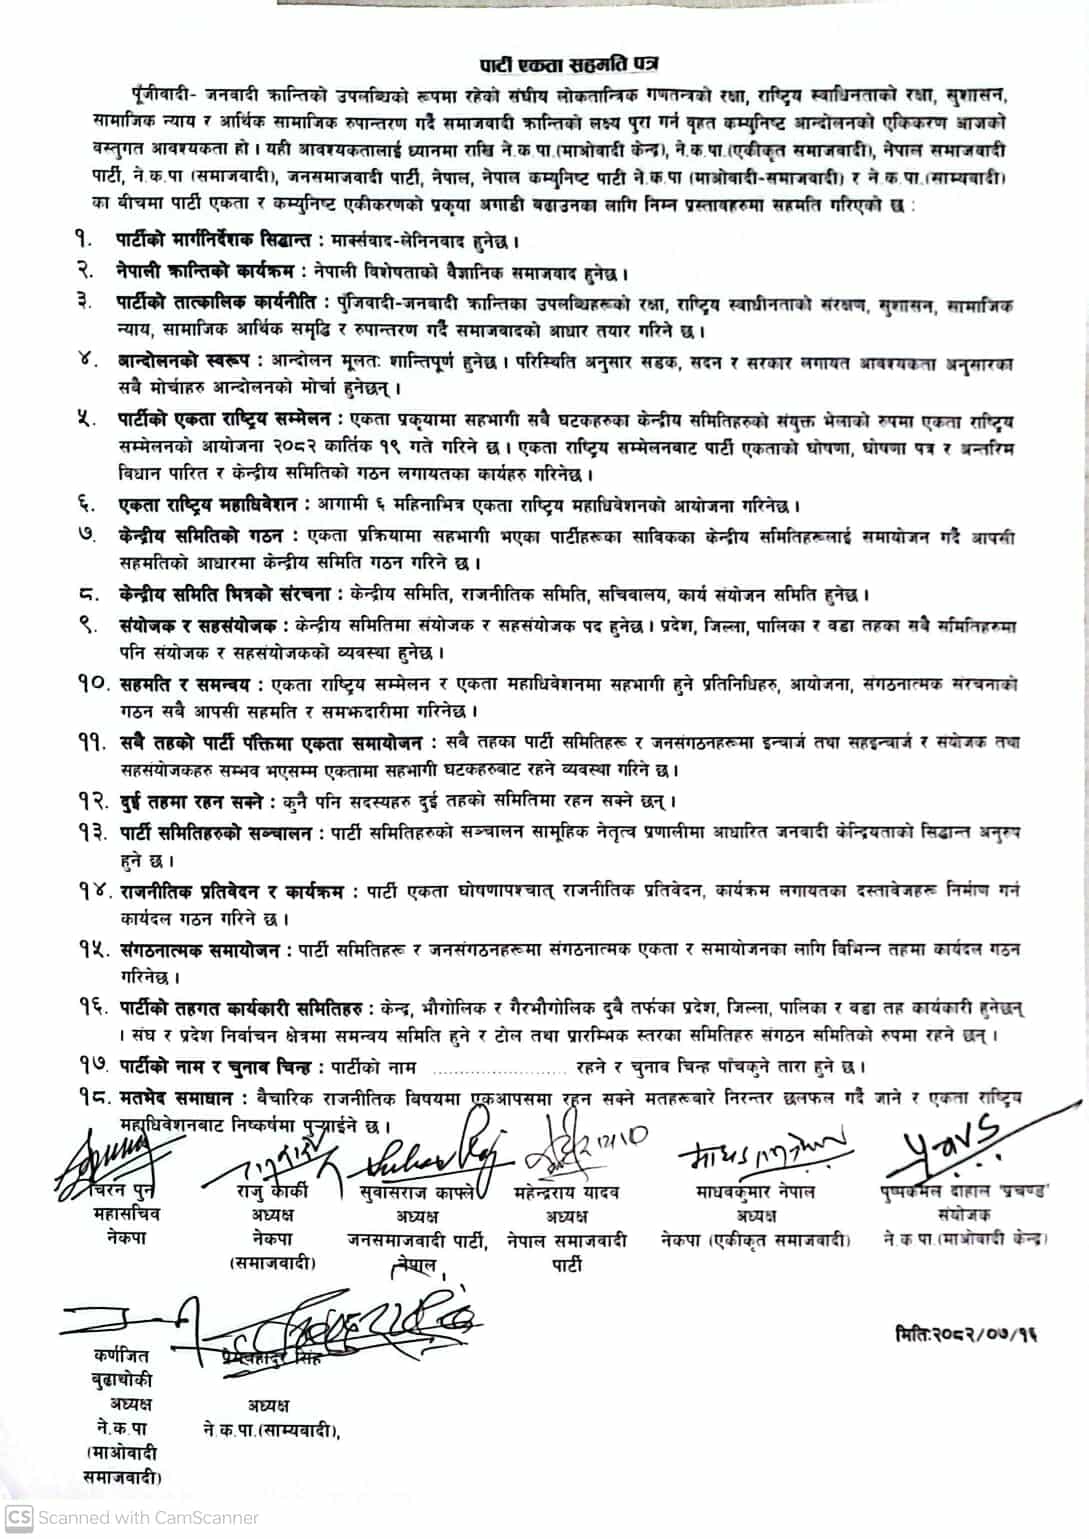 पार्टी एकता सहमति पत्र
पूँजीवादी- जनवादी क्रान्तिको उपलब्धिको रूपमा रहेको संघीय लोकतान्त्रिक गणतन्त्रको रक्षा, राष्ट्रिय स्वाधिनताको रक्षा, सुशासन,
सामाजिक न्याय र आर्थिक सामाजिक रुपान्तरण गर्दै समाजवादी क्रान्तिको लक्ष्य पुरा गर्न वृहत कम्युनिष्ट आन्दोलनको एकिकरण आजको
वस्तुगत आवश्यकता हो । यही आवश्यकतालाई ध्यानमा राखि ने.क.पा.(माओवादी केन्द्र), ने.क.पा.(एकीकृत समाजवादी), नेपाल समाजवादी
पार्टी, ने.क.पा (समाजवादी), जनसमाजवादी पार्टी, नेपाल, नेपाल कम्युनिष्ट पार्टी ने.क.पा (माओवादी-समाजवादी) र ने.क.पा.(साम्यवादी)
का बीचमा पार्टी एकता र कम्युनिष्ट एकीकरणको प्रकृया अगाडी बढाउनका लागि निम्न प्रस्तावहरुमा सहमति गरिएको छ :
१. पार्टीको मार्गनिर्देशक सिद्धान्त : मार्क्सवाद-लेनिनवाद हुनेछ ।
२. नेपाली क्रान्तिको कार्यक्रम : नेपाली विशेषताको वैज्ञानिक समाजवाद हुनेछ ।
३. पार्टीको तात्कालिक कार्यनीति : पुँजिवादी-जनवादी क्रान्तिका उपलब्धिहरूको रक्षा, राष्ट्रिय स्वाधीनताको संरक्षण, सुशासन, सामाजिक
न्याय, सामाजिक आर्थिक समृद्धि र रुपान्तरण गर्दै समाजवादको आधार तयार गरिने छ ।
४. आन्दोलनको स्वरूप : आन्दोलन मूलतः शान्तिपूर्ण हुनेछ । परिस्थिति अनुसार सडक, सदन र सरकार लगायत आवश्यकता अनुसारका
सबै मोर्चाहरु आन्दोलनको मोर्चा हुनेछन् ।
५. पार्टीको एकता राष्ट्रिय सम्मेलन : एकता प्रकृयामा सहभागी सबै घटकहरुका केन्द्रीय समितिहरुको संयुक्त भेलाको रुपमा एकता राष्ट्रिय
सम्मेलनको आयोजना २०८२ कार्तिक १९ गते गरिने छ । एकता राष्ट्रिय सम्मेलनबाट पार्टी एकताको घोषणा, घोषणा पत्र र अन्तरिम
विधान पारित र केन्द्रीय समितिको गठन लगायतका कार्यहरु गरिनेछ ।
६. एकता राष्ट्रिय महाधिवेशन : आगामी ६ महिनाभित्र एकता राष्ट्रिय महाधिवेशनको आयोजना गरिनेछ ।
७. केन्द्रीय समितिको गठन : एकता प्रक्रियामा सहभागी भएका पार्टीहरूका साविकका केन्द्रीय समितिहरूलाई समायोजन गर्दै आपसी
सहमतिको आधारमा केन्द्रीय समिति गठन गरिने छ ।
८. केन्द्रीय समिति भित्रको संरचना : केन्द्रीय समिति, राजनीतिक समिति, सचिवालय, कार्य संयोजन समिति हुनेछ ।
९. संयोजक र सहसंयोजक : केन्द्रीय समितिमा संयोजक र सहसंयोजक पद हुनेछ । प्रदेश, जिल्ला, पालिका र वडा तहका सबै समितिहरुमा
पनि संयोजक र सहसंयोजकको व्यवस्था हुनेछ ।
१०. सहमति र समन्वय : एकता राष्ट्रिय सम्मेलन र एकता महाधिवेशनमा सहभागी हुने प्रतिनिधिहरु, आयोजना, संगठनात्मक संरचनाको
गठन सबै आपसी सहमति र समझदारीमा गरिनेछ ।
११. सबै तहको पार्टी पंक्तिमा एकता समायोजन : सबै तहका पार्टी समितिहरू र जनसंगठनहरूमा इन्चार्ज तथा सहइन्चार्ज र संयोजक तथा
सहसंयोजकहरु सम्भव भएसम्म एकतामा सहभागी घटकहरुबाट रहने व्यवस्था गरिने छ ।
१२. दुई तहमा रहन सक्ने : कुनै पनि सदस्यहरु दुई तहको समितिमा रहन सक्ने छन् ।
१३. पार्टी समितिहरुको सञ्चालन : पार्टी समितिहरुको सञ्चालन सामूहिक नेतृत्व प्रणालीमा आधारित जनवादी केन्द्रियताको सिद्धान्त अनुरुप
हुने छ ।
१४. राजनीतिक प्रतिवेदन र कार्यक्रम : पार्टी एकता घोषणापश्चात् राजनीतिक प्रतिवेदन, कार्यक्रम लगायतका दस्तावेजहरू निर्माण गर्न
कार्यदल गठन गरिने छ ।
१५. संगठनात्मक समायोजन : पार्टी समितिहरू र जनसंगठनहरूमा संगठनात्मक एकता र समायोजनका लागि विभिन्न तहमा कार्यदल गठन
गरिनेछ ।
१६. पार्टीको तहगत कार्यकारी समितिहरु : केन्द्र, भौगोलिक र गैरभौगोलिक दुबै तर्फका प्रदेश, जिल्ला, पालिका र वडा तह कार्यकारी हुनेछन्
। संघ र प्रदेश निर्वाचन क्षेत्रमा समन्वय समिति हुने र टोल तथा प्रारम्भिक स्तरका समितिहरु संगठन समितिको रुपमा रहने छन् ।
१७. पार्टीको नाम र चुनाव चिन्ह : पार्टीको नाम ........................ रहने र चुनाव चिन्ह पाँचकुने तारा हुने छ ।
१८. मतभेद समाधान : वैचारिक राजनीतिक विषयमा एकआपसमा रहन सक्ने मतहरूबारे निरन्तर छलफल गर्दै जाने र एकता राष्ट्रिय
महाधिवेशनबाट निष्कर्षमा पुऱ्याईने छ ।
चिरन पुन राजु कार्की सुवासराज काफ्ले महेन्द्रराय यादव माधवकुमार नेपाल पुष्पकमल दाहाल 'प्रचण्ड'
महासचिव अध्यक्ष अध्यक्ष अध्यक्ष अध्यक्ष संयोजक
नेकपा नेकपा जनसमाजवादी पार्टी, नेपाल समाजवादी नेकपा (एकीकृत समाजवादी) ने.क.पा.(माओवादी केन्द्र)
(समाजवादी) नेपाल, पार्टी
मिति:२०८२/०७/१६
कर्णजित प्रेमबहादुर सिंह
बुढाथोकी
अध्यक्ष अध्यक्ष
ने.क.पा ने.क.पा.(साम्यवादी),
(माओवादी
समाजवादी)
CS Scanned with CamScanner